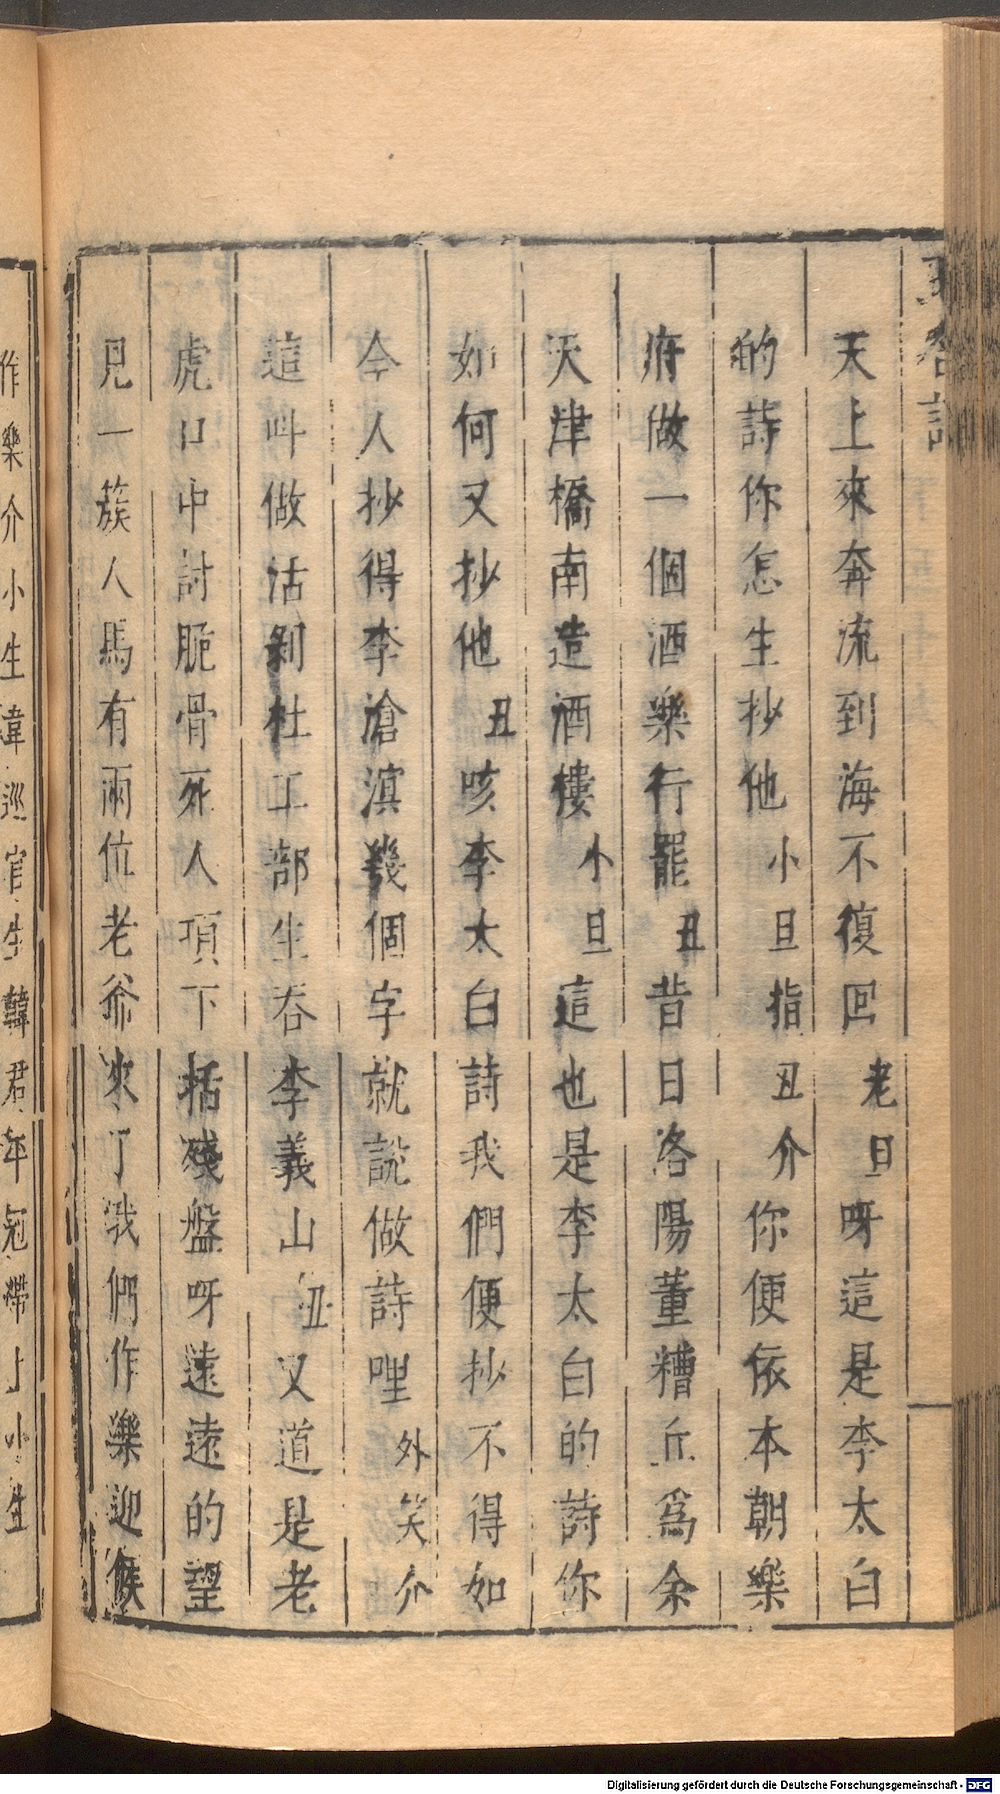 天上來奔流到海不復回老旦呀這是李太白
的詩你怎生抄他小旦指丑介你便依本朝樂
府做一個酒樂行罷丑昔日洛陽董糟丘爲余
天津橋南造酒樓小旦這也是李太白的詩你
如何又抄他丑咳李太白詩我們便抄不得如
今人抄得李滄溟幾個字就說做詩哩外笑介
這叫做活剝杜工部生吞李義山丑又道是老
虎口中討脆骨死人項下括殘盤呀遠遠的望
見一簇人馬有兩位老爺來了我們作樂迎候
作樂介小生韋巡官生韓君平冠帶上小生
Digitalisierung gefördert durch die Deutsche Forschungsgemeinschaft - DFG